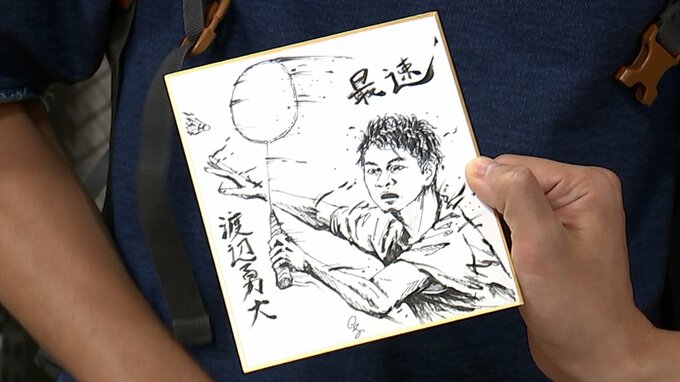 最速
渡辺勇大